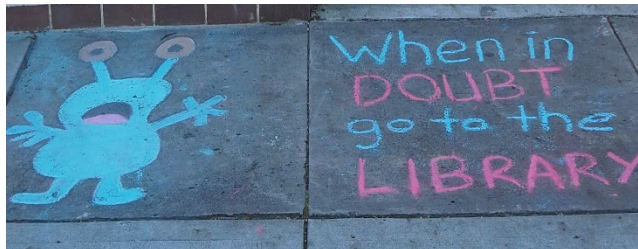 When in
DOUBT
go to the
LIBRARY